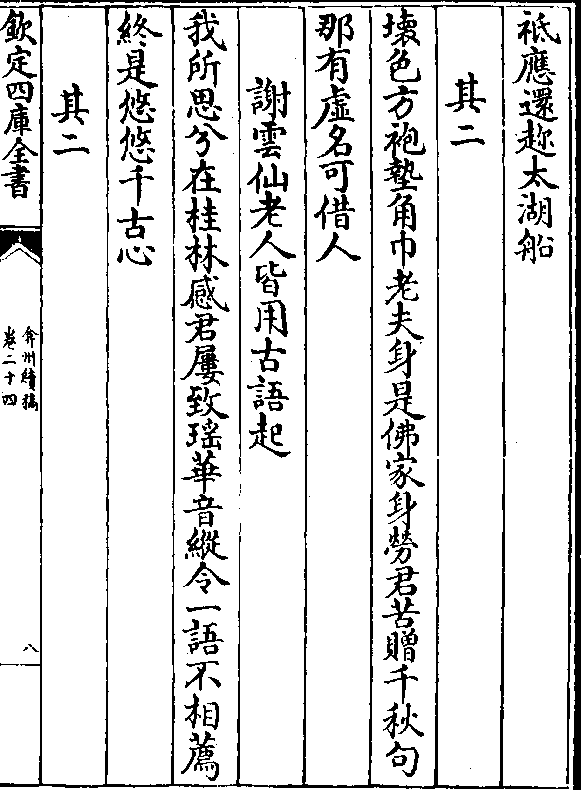 祗應還趂太湖船
其二
壊色方袍墊角巾老夫身是佛家身勞君苦贈千秋句
那有虛名可借人
謝雲仙老人皆用古語起
我所思兮在桂林感君屢致瑶華音縱令一語不相薦
終是悠悠千古心
其二
欽定四庫全書
弇州續稿
卷二十四
八